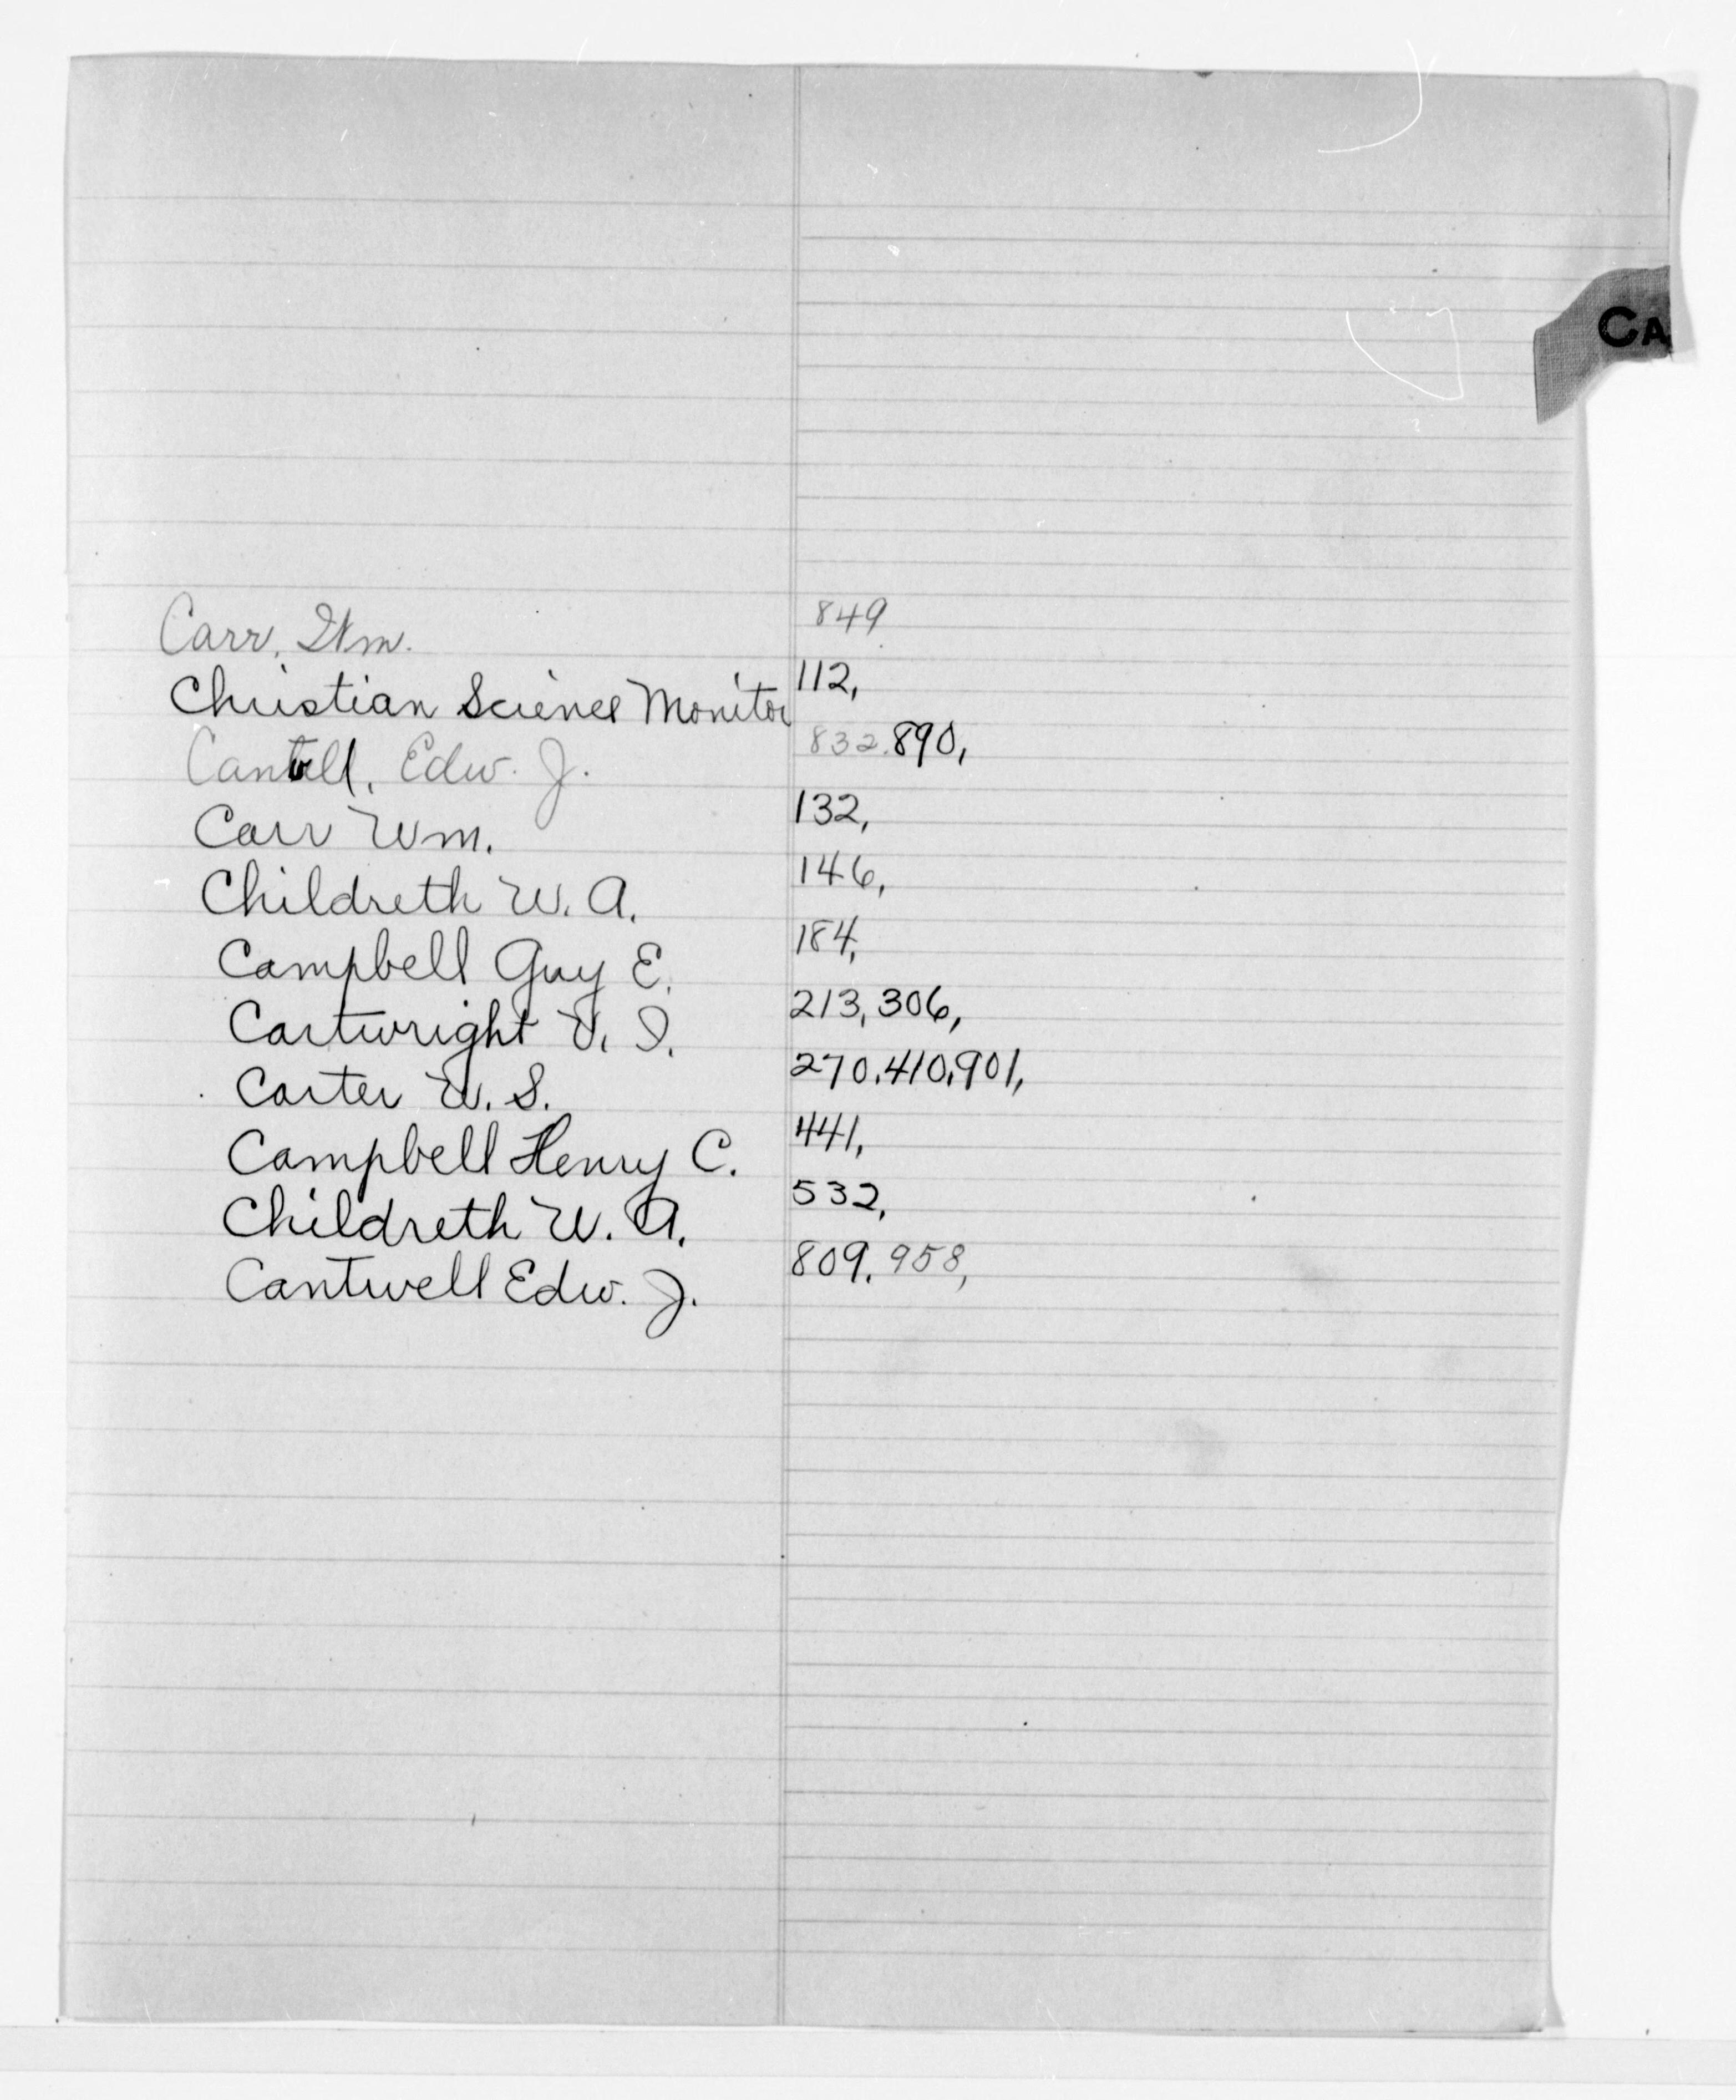 CA
Carr, Wm. 849
Christian Science Monitor 112,
Cantwell, Edw. J. 832, 890,
Carr Wm. 132,
Childreth W. A. 146,
Campbell Guy E. 184,
Cartwright V. I. 213, 306,
Carter W. S. 270, 410, 901,
Campbell Henry C. 441,
Childreth W. A. 532,
Cantwell Edw. J. 809, 958,